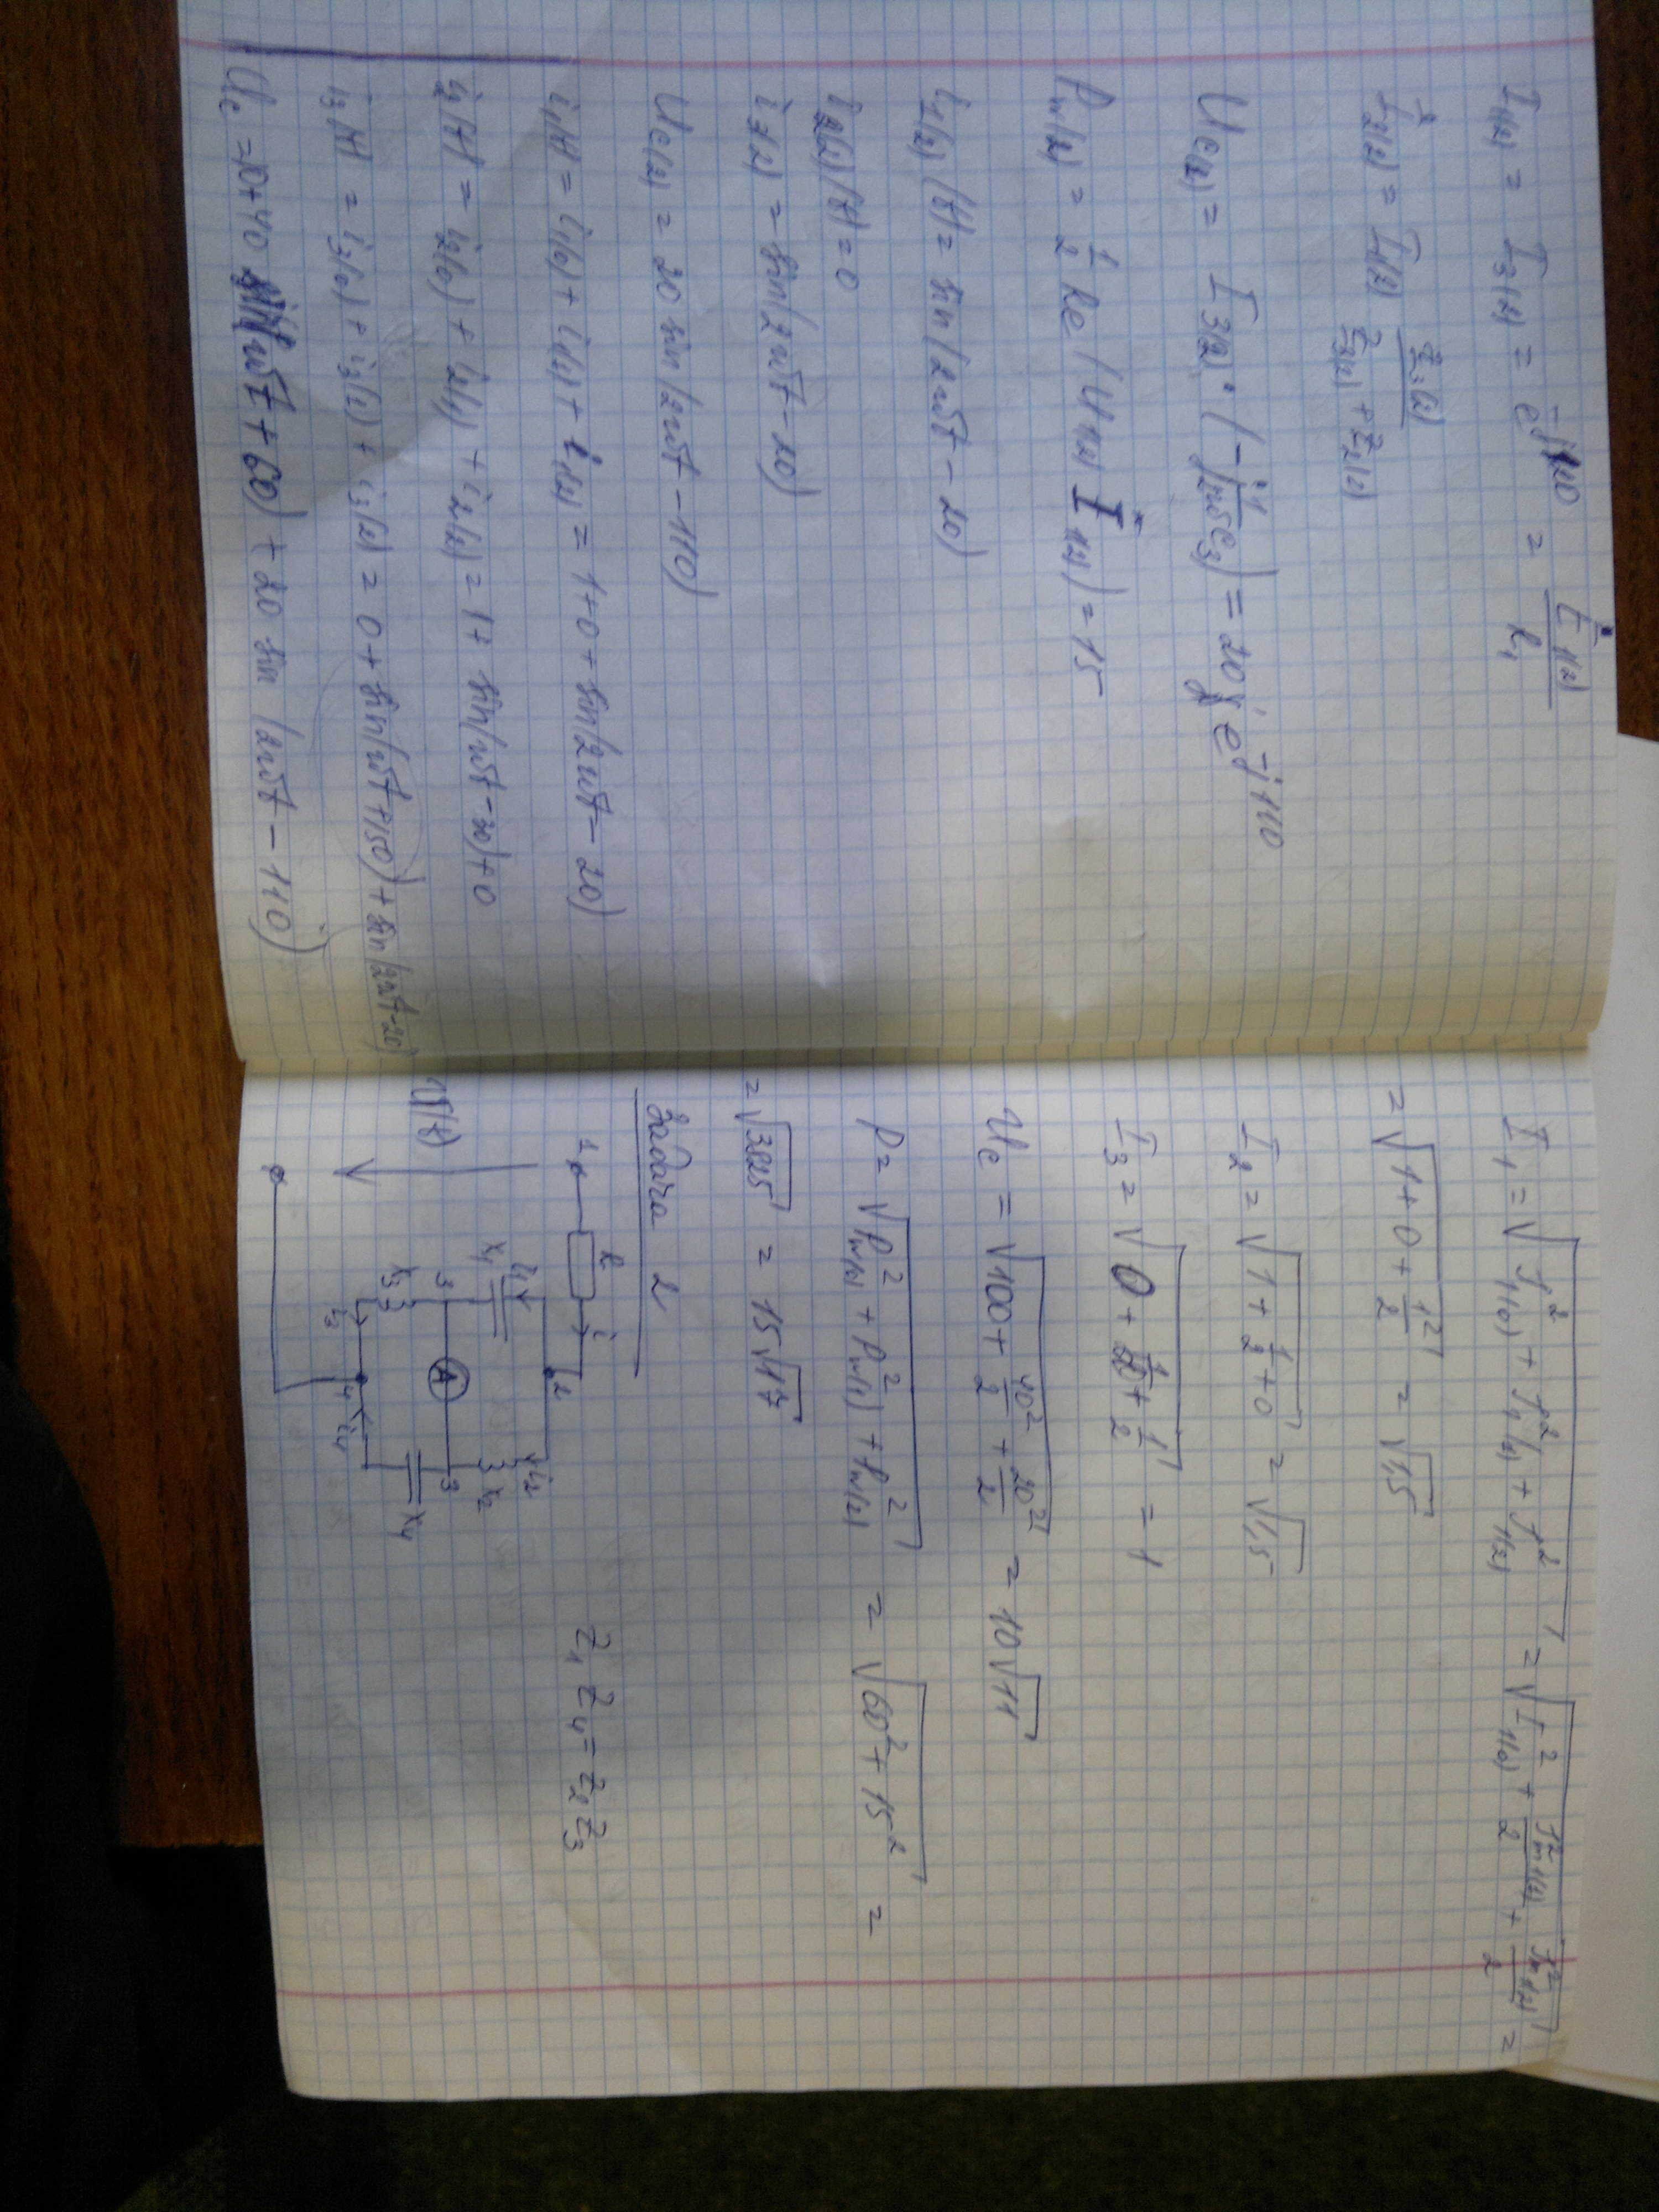 I₁₍₂₎ = I₃₍₂₎ = e^-j20 = E₁₍₂₎ / R₁
I₂₍₂₎ = I₁₍₂₎ Z₃₍₂₎ / (Z₃₍₂₎ + Z₂₍₂₎)
U_C₍₂₎ = I₃₍₂₎ · (-j 1/(2ωC₃)) = 20 e^-j110
P_w₍₂₎ = 1/2 Re (U₁₍₂₎ I*₁₍₂₎) = 15
i₁₍₂₎(t) = sin(2ωt - 20)
i₂₍₂₎(t) = 0
i₃₍₂₎ = sin(2ωt - 20)
U_C₍₂₎ = 20 sin(2ωt - 110)
i₁(t) = i₁₍₀₎ + i₁₍₁₎ + i₁₍₂₎ = 1 + 0 + sin(2ωt - 20)
i₂(t) = i₂₍₀₎ + i₂₍₁₎ + i₂₍₂₎ = 1 + sin(ωt - 30) + 0
i₃(t) = i₃₍₀₎ + i₃₍₁₎ + i₃₍₂₎ = 0 + sin(ωt + 150) + sin(2ωt - 20)
U_C = 10 + 40 sin(ωt + 60) + 20 sin (2ωt - 110)
I₁ = √(I₁²₍₀₎ + I₁²₍₁₎ + I₁²₍₂₎) = √(I²₁₍₀₎ + I²m₁₍₁₎/2 + I²m₁₍₂₎/2) =
= √(1 + 0 + 1²/2) = √1,5
I₂ = √(1 + 1/2 + 0) = √1,5
I₃ = √(0 + 1/2 + 1/2) = 1
U_C = √(100 + 40²/2 + 20²/2) = 10√11
P = √(P²w₍₀₎ + P²w₍₁₎ + P²w₍₂₎) = √(60² + 15²) =
= √3825 = 15√17
Задача 2
1 R i 2
i₁ X₁ i₂ X₂
3 A 3
Z₁ Z₄ = Z₂ Z₃
U(t)
X₃ X₄
i₃ 4 i₄